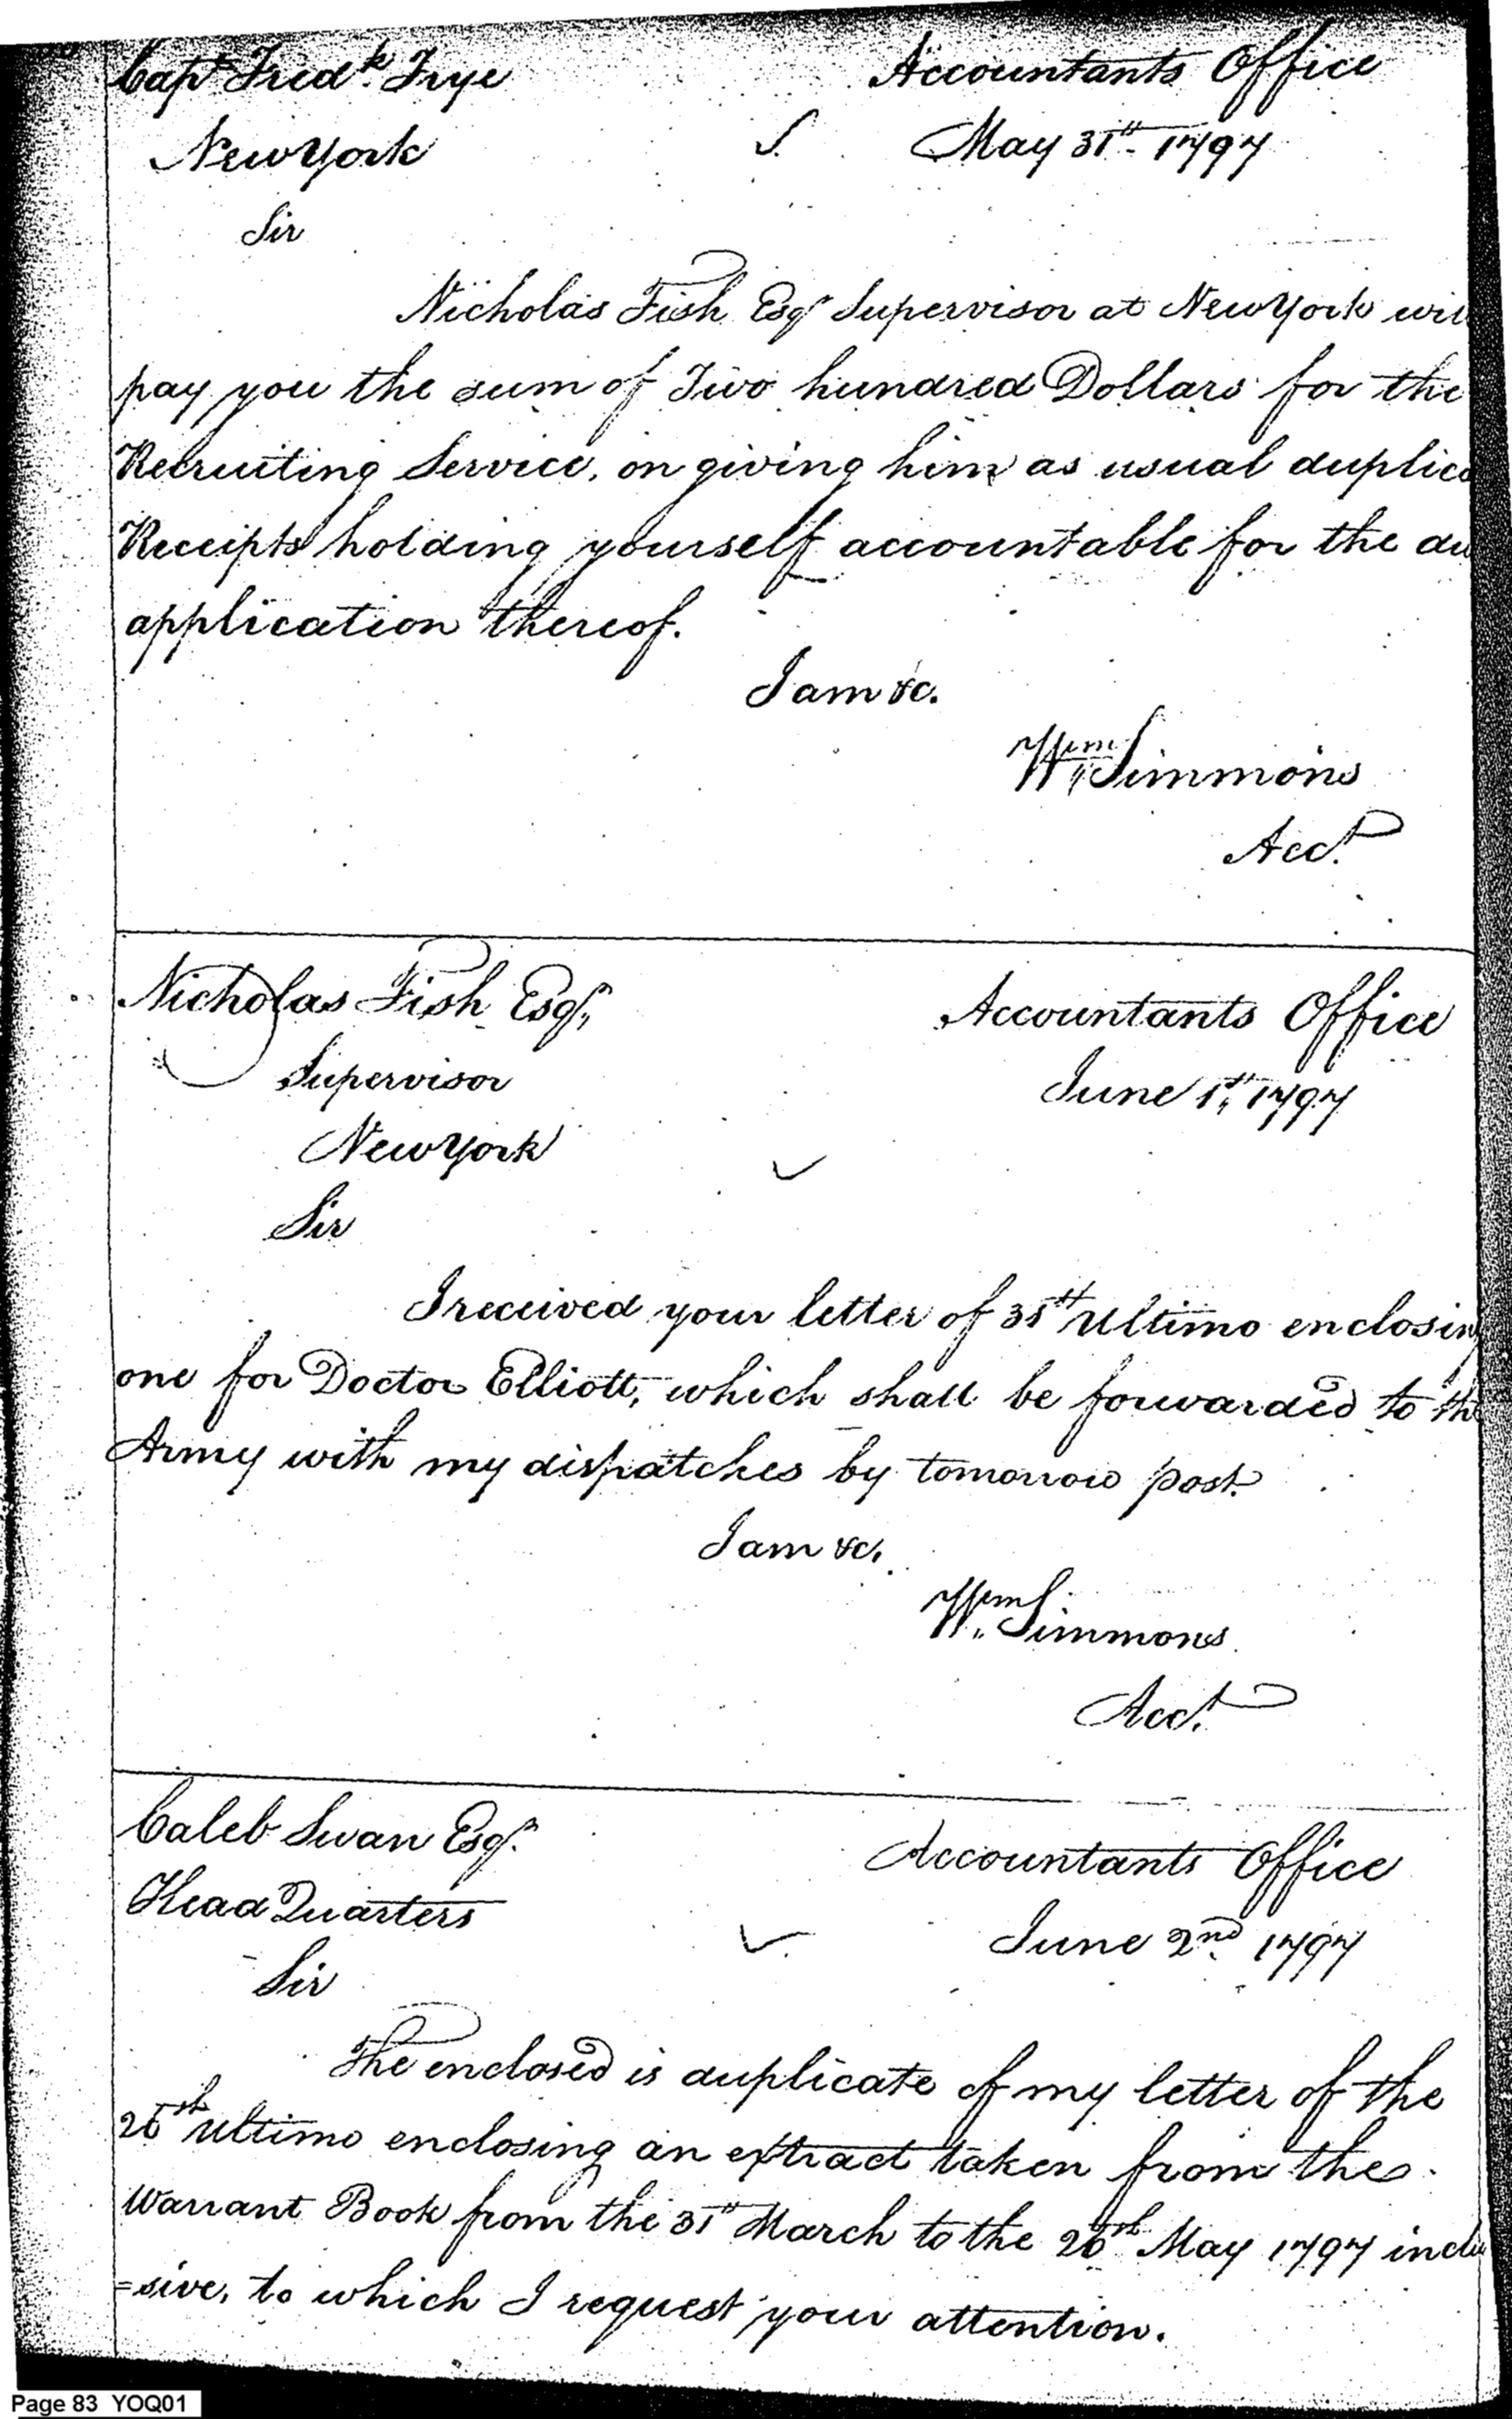 Capt Fredk. Frye Accountants Office
New York May 31st 1797
Sir
Nicholas Fish Esqr Supervisor at New York wil
pay you the sum of Two hundred Dollars for the
Recruiting Service, on giving him as usual duplica
Receipts holding yourself accountable for the du
application thereof.
I am &c.
Wm Simmons
Acct.
Nicholas Fish Esqr, Accountants Office
Supervisor June 1st, 1797
New York
Sir
I received your letter of 31st Ultimo enclosing
one for Doctor Elliott, which shall be forwarded to the
Army with my dispatches by tomorrow post.
I am &c.
Wm. Simmons
Acct.
Caleb Swan Esqr. Accountants Office
Head Quarters June 2nd. 1797
Sir
The enclosed is duplicate of my letter of the
26th Ultimo enclosing an extract taken from the
Warrant Book from the 31st March to the 26th May 1797 inclu
=sive, to which I request your attention.
Page 83 YOQ01